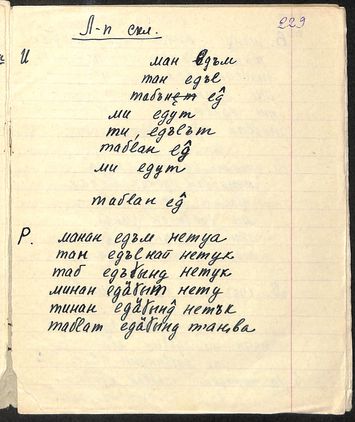 Л-п скл.
229
И ман едъм
тан едъл
табън ет ед̂
ми едут
ти, едълът
таблан ед̂
ми едут
таблан ед̂
Р. манан едъм нетуа
тан едъл нат нетук
таб едъɣынд нетук
минан едӓɣыт нету
тинан едӓɣынд̂ нетък
таблат едӓɣынд танɨва